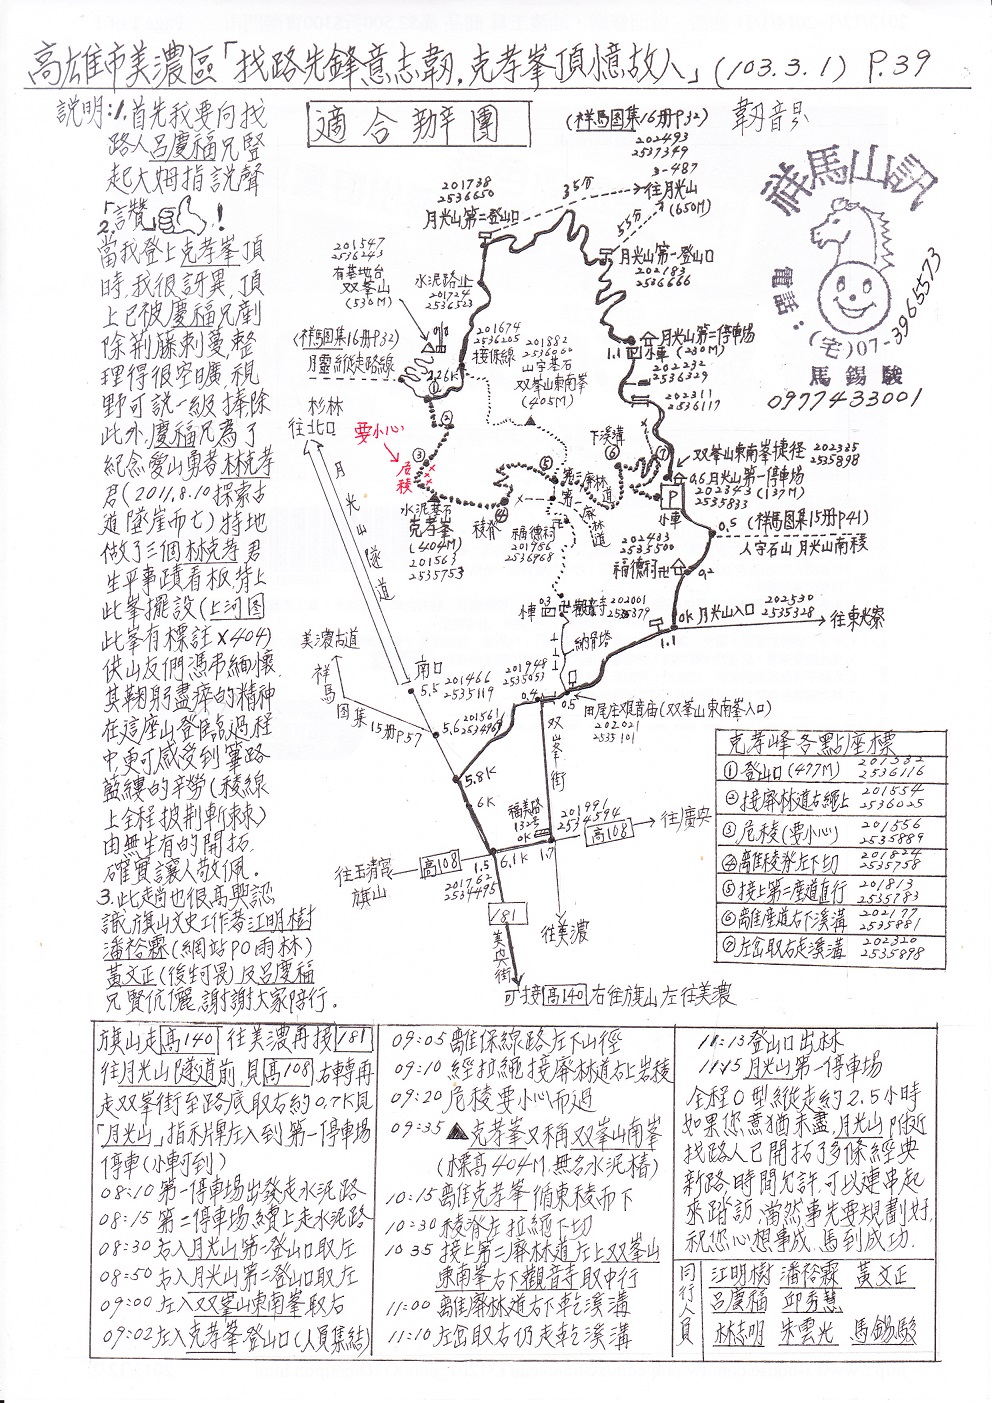 高雄市美濃區「找路先鋒意志韌，克孝峯頂憶故人」(103.3.1) P.39
說明:1.首先我要向找
路人呂慶福兄豎
起大姆指說聲
讚！
2.
當我登上克孝峯頂
時，我很訝異，頂
上已被慶福兄剷
除荊藤刺蔓，整
理得很空曠，視
野可說一級捧，除
此外，慶福兄為了
紀念愛山勇者林克孝
君(2011.8.10探索古
道墜崖而亡)特地
做了三個林克孝君
生平事蹟看板，背上
此峯擺設(上河圖
此峯有標註X404)
供山友們憑弔緬懷
其鞠躬盡瘁的精神
在這座山登臨過程
中更可感受到篳路
藍縷的辛勞(稜線
上全程披荊斬棘)
由無生有的開拓，
確實讓人敬佩。
3.此趟也很高興認
識，旗山文史工作者江明樹
潘裕霖(網站PO雨林)
黃文正(後生可畏)及呂慶福
兄賢伉儷，謝謝大家陪行。
適合辦團
(祥馬圖集16册P32)
202493
2537349
3-487
往月光山
(650M)
35分
55分
祥馬山訊
電話：
(宅)07-3965573
馬錫駿
0977433001
201738
2536650
月光山第二登山口
月光山第一登山口
202183
2536666
201547
2536243
有基地台
双峯山
(530M)
水泥路止
201724
2536523
(祥馬圖集16册P32)
月靈縱走路線
201674
2536205
接保線
201882
2536060
山字基石
双峯山東南峯
(405M)
月光山第二停車場
1.1 小車 (230M)
202232
2536329
202311
2536117
杉林
往北口
月光山隧道
要小心
危稜
水泥基石
克孝峯
(404M)
201563
2535753
稜脊
下溪溝
第二廢林道
第一廢林道
双峯山東南峯捷徑 202335
2535898
0.6 月光山第一停車場
202343 (137M)
2535833
P
小車
0.5 (祥馬圖集15册P41)
人字石山 月光山南稜
福德祠
201956
2536968
202433
2535500
福德祠
0.2
小車
0.3
觀音寺
202001
納骨塔
0K 月光山入口 202530
2535328
1.1
往東光寮
美濃古道
祥馬圖集15册P57
南口
5.5
201466
2535119
5.6
201561
201948
0.4
0.5
田尾座艰首庙(双峯山東南峯入口)
202021
2535101
双峯街
5.8K
6K
福美路
132号
0K
201991
2534594
高108
往廣興
1.7
6.1K
1.5
高108
往玉清宮
旗山
201762
2534495
181
美興街
往美濃
可接高140右往旗山左往美濃
克孝峰各點座標
①登山口(477M) 201582 2536116
②接廢林道右繩上 201554 2536025
③危稜(要小心) 201556 2535889
④離稜脊左下切 201824 2535758
⑤接上第二廢道直行 201813 2535783
⑥離廢道右下溪溝 202177 2535881
⑦左岔取右走溪溝 202320 2535898
旗山走高140往美濃再接181
往月光山隧道前，見高108右轉再
走双峯街至路底取右約0.7K見
「月光山」指示牌左入到第一停車場
停車(小車可到)
08:10 第一停車場出發走水泥路
08:15 第二停車場續上走水泥路
08:30 右入月光山第一登山口取左
08:50 右入月光山第二登山口取左
09:00 左入双峯山東南峯取右
09:02 左入克孝峯登山口(人員集結)
09:05 離保線路左下山徑
09:10 經拉繩接廢林道右上岩稜
09:20 危稜要小心而過
09:35 ▲克孝峯又稱双峯山南峯
(標高404M，無名水泥樁)
10:15 離克孝峯循東稜而下
10:30 稜脊左拉繩下切
10:35 接上第二廢林道左上双峯山
東南峯右下觀音寺取中行
11:00 離廢林道右下乾溪溝
11:10 左岔取右仍走乾溪溝
11:13 登山口出林
11:15 月光山第一停車場
全程O型縱走約2.5小時
如果您意猶未盡，月光山附近
找路人已開拓了多條經典
新路，時間允許，可以連串起
來踏訪，當然事先要規劃好，
祝您心想事成，馬到成功。
同行人員
江明樹 潘裕霖 黃文正
呂慶福 邱秀慧
林志明 朱雲光 馬錫駿